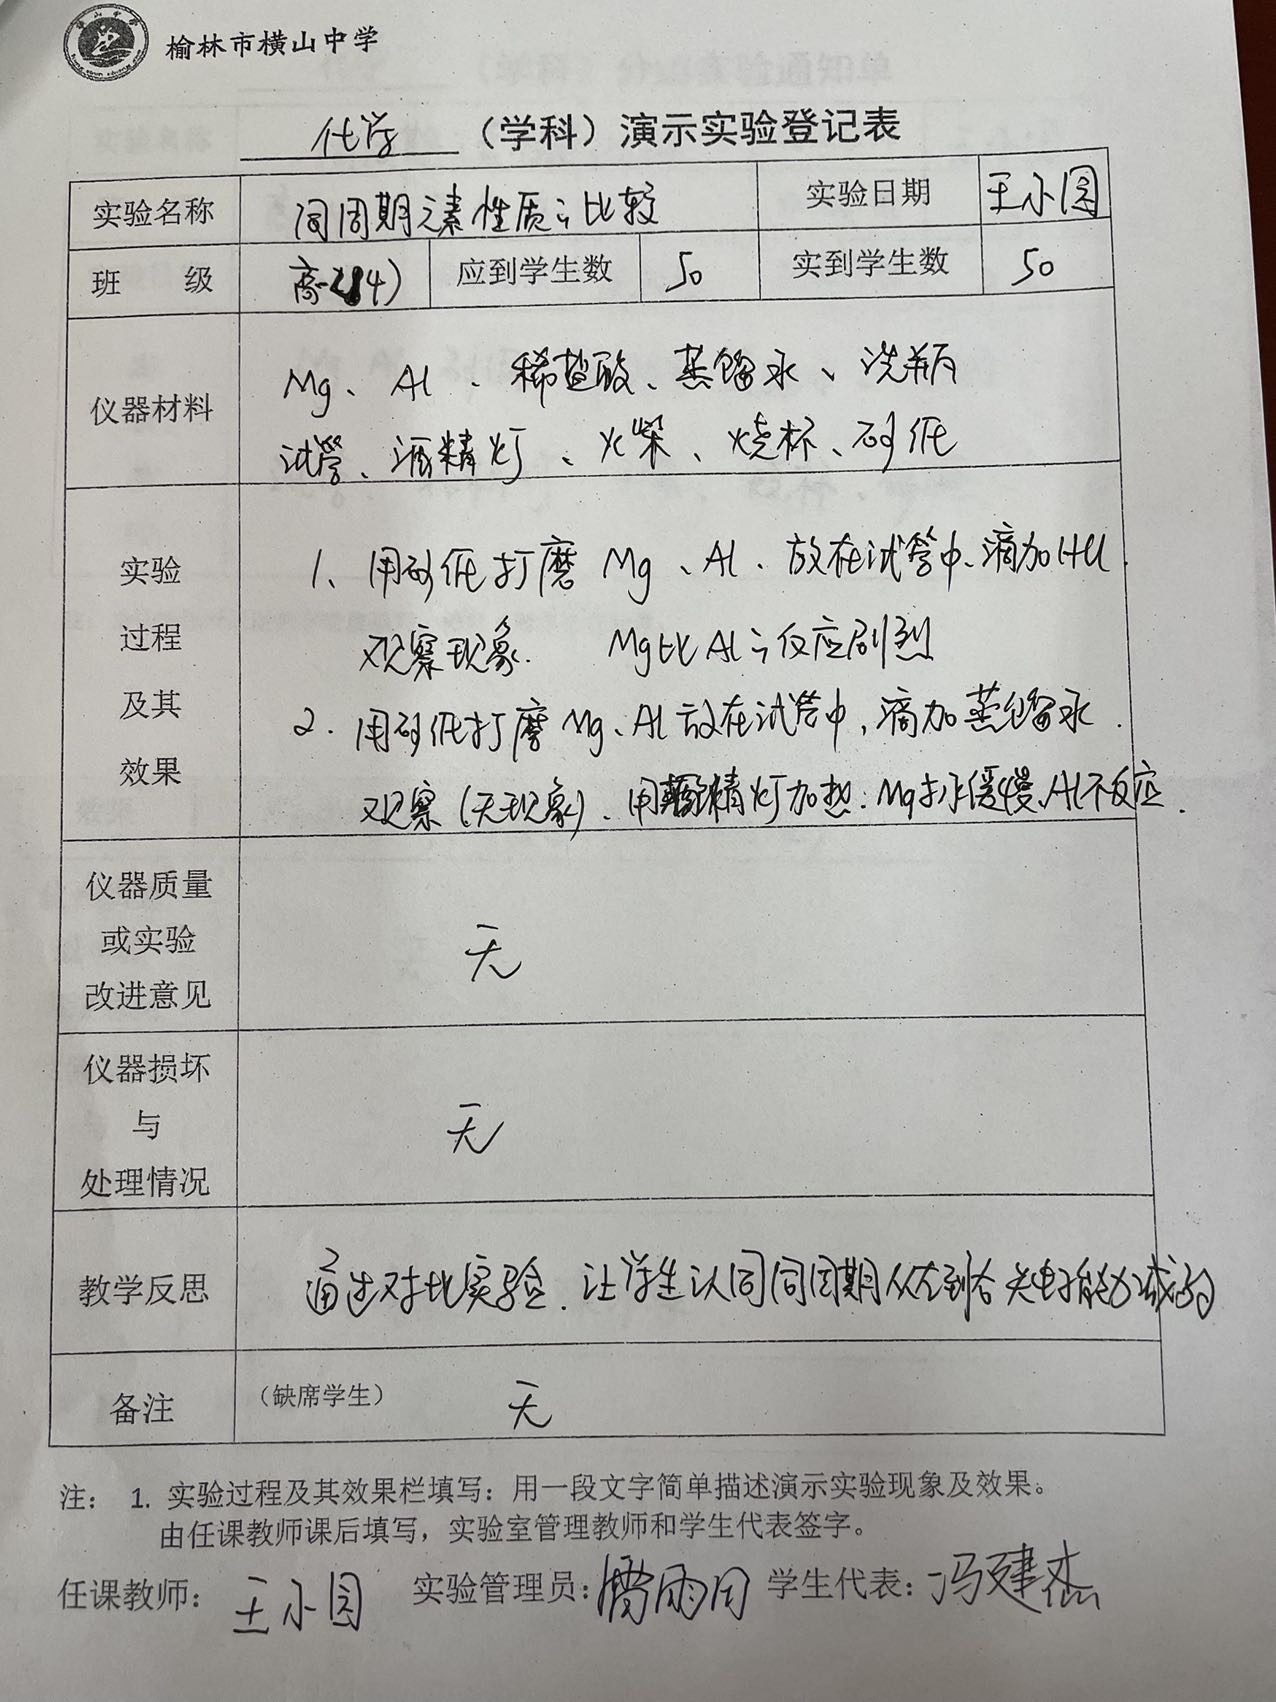 榆林市横山中学
化学 （学科）演示实验登记表
实验名称 同周期元素性质的比较 实验日期 王小园
班 级 高一(14) 应到学生数 50 实到学生数 50
仪器材料
Mg、Al、稀盐酸、蒸馏水、洗瓶
试管、酒精灯、火柴、烧杯、砂纸
实验
过程
及其
效果
1、用砂纸打磨 Mg、Al、放在试管中、滴加HCl.
观察现象. Mg比Al的反应剧烈
2.用砂纸打磨Mg、Al放在试管中,滴加蒸馏水.
观察(无现象)、用酒精灯加热:Mg 缓慢、Al不反应.
仪器质量
或实验
改进意见
无
仪器损坏
与
处理情况
无
教学反思
通过对比实验.让学生认同同周期从左到右失电子能力减弱
备注 （缺席学生） 无
注： 1. 实验过程及其效果栏填写：用一段文字简单描述演示实验现象及效果。
由任课教师课后填写，实验室管理教师和学生代表签字。
任课教师：王小园 实验管理员： 学生代表：冯建杰